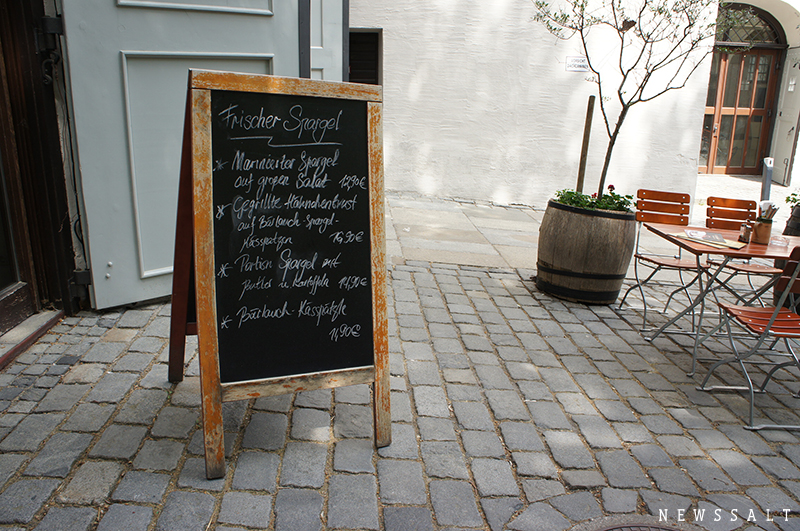 Frischer Spargel
* Marinierter Spargel
auf großen Salat 12,90€
* Gegrillte Hähnchenbrust
auf Bärlauch-Spargel-
Kässpatzen 16,90€
* Portion Spargel mit
Butter u Kartoffeln 14,90€
* Bärlauch-Kässpätzle
14,90€
NEWSSALT